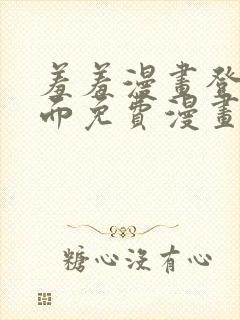 羞羞漫畫登
面免費漫畫
糖心沒有心